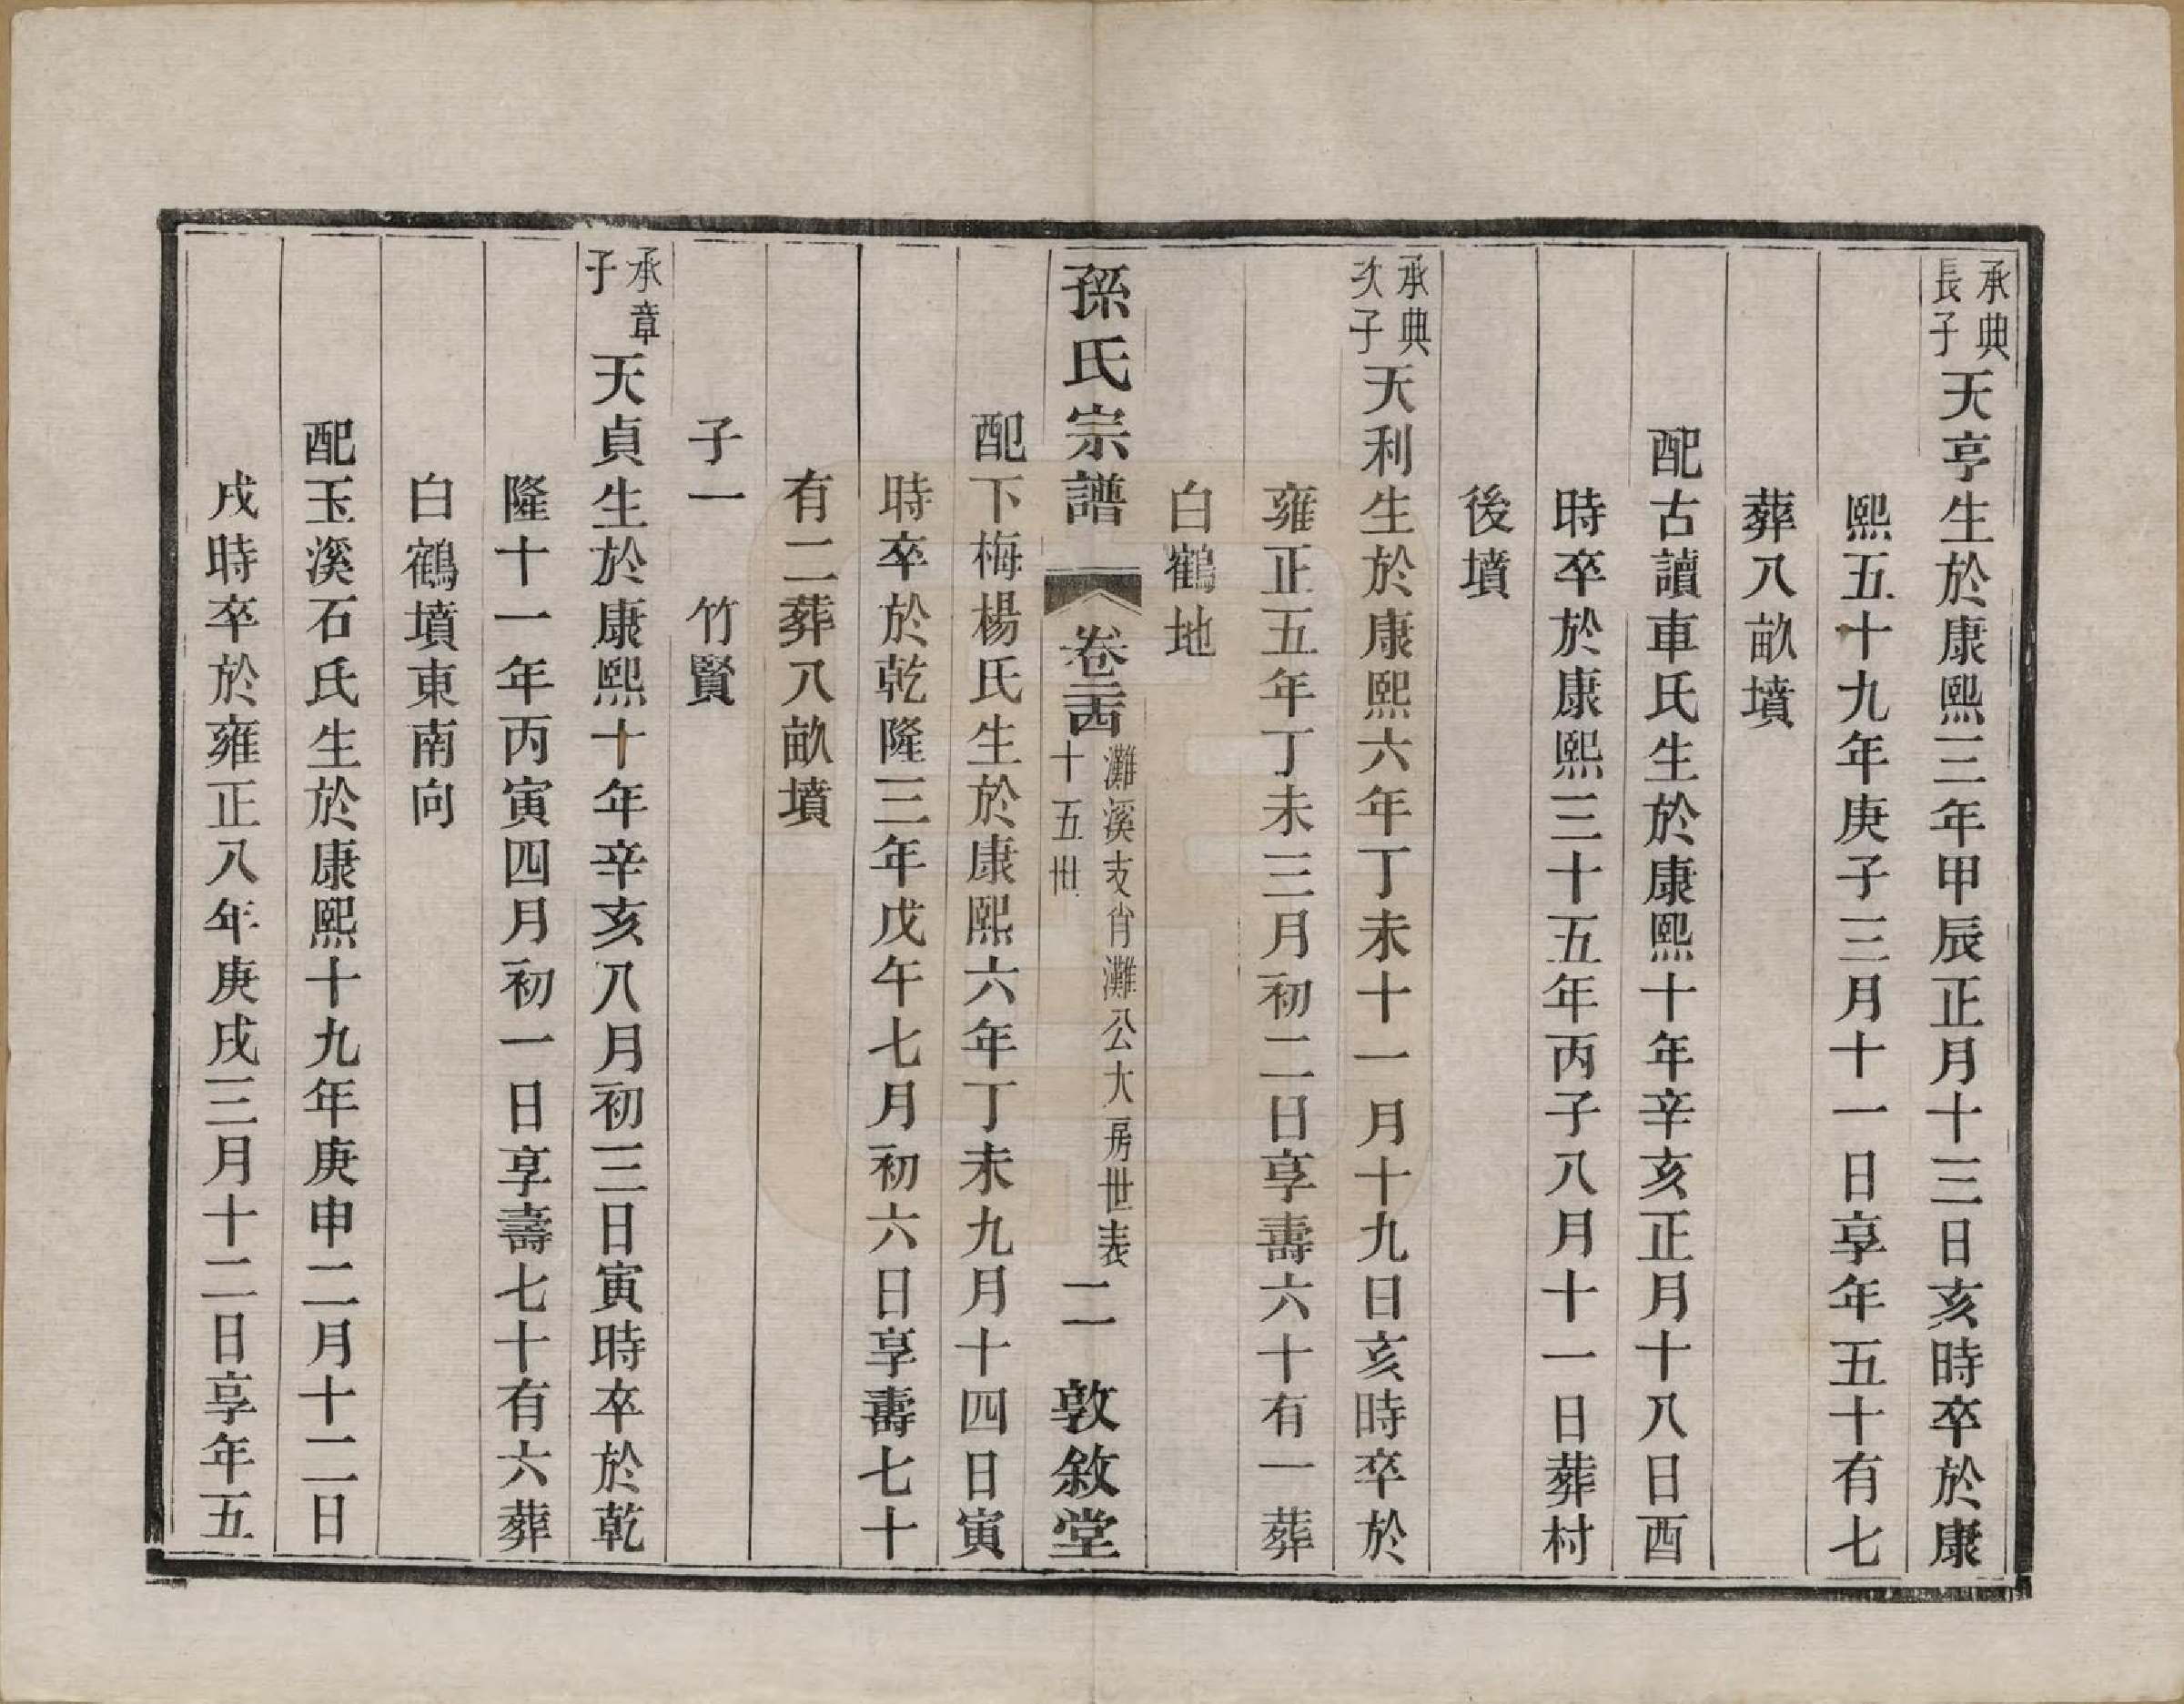 承典長子天亨生於康熙三年甲辰正月十三日亥時卒於康
熙五十九年庚子三月十一日享年五十有七
葬八畝墳
配古讀車氏生於康熙十年辛亥正月十八日酉
時卒於康熙三十五年丙子八月十一日葬村
後墳
承典次子天利生於康熙六年丁未十一月十九日亥時卒於
雍正五年丁未三月初二日享壽六十有一葬
白鶴地
孫氏宗譜 卷二十四 灘溪支肖灘公大房世表 十五世 二 敦敘堂
配下梅楊氏生於康熙六年丁未九月十四日寅
時卒於乾隆三年戊午七月初六日享壽七十
有二葬八畝墳
子一 竹賢
承章子天貞生於康熙十年辛亥八月初三日寅時卒於乾
隆十一年丙寅四月初一日享壽七十有六葬
白鶴墳東南向
配玉溪石氏生於康熙十九年庚申二月十二日
戌時卒於雍正八年庚戌三月十二日享年五